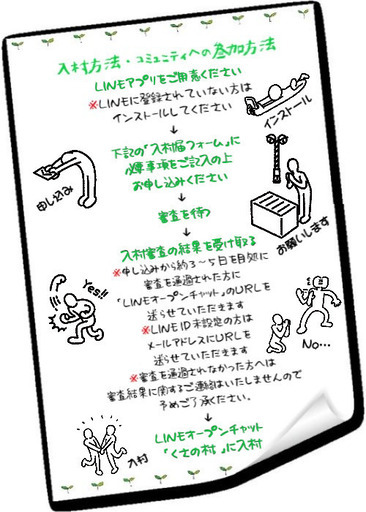 入村方法・コミュニティへの参加方法
LINEアプリをご用意ください
※LINEに登録されていない方は
インストールしてください
インストール
↓
下記の「入村届フォーム」に
必要事項をご記入の上
お申し込みください
申し込み
↓
審査を待つ
お願いします
↓
入村審査の結果を受け取る
※申し込みから約3～5日を目処に
審査を通過された方に
「LINEオープンチャット」のURLを
送らせていただきます
Yes!!
※LINE ID未設定の方は
メールアドレスにURLを
送らせていただきます
No...
※審査を通過されなかった方へは
審査結果に関するご連絡はいたしませんので
予めご了承ください。
↓
LINEオープンチャット
「くさの村」に入村
入村